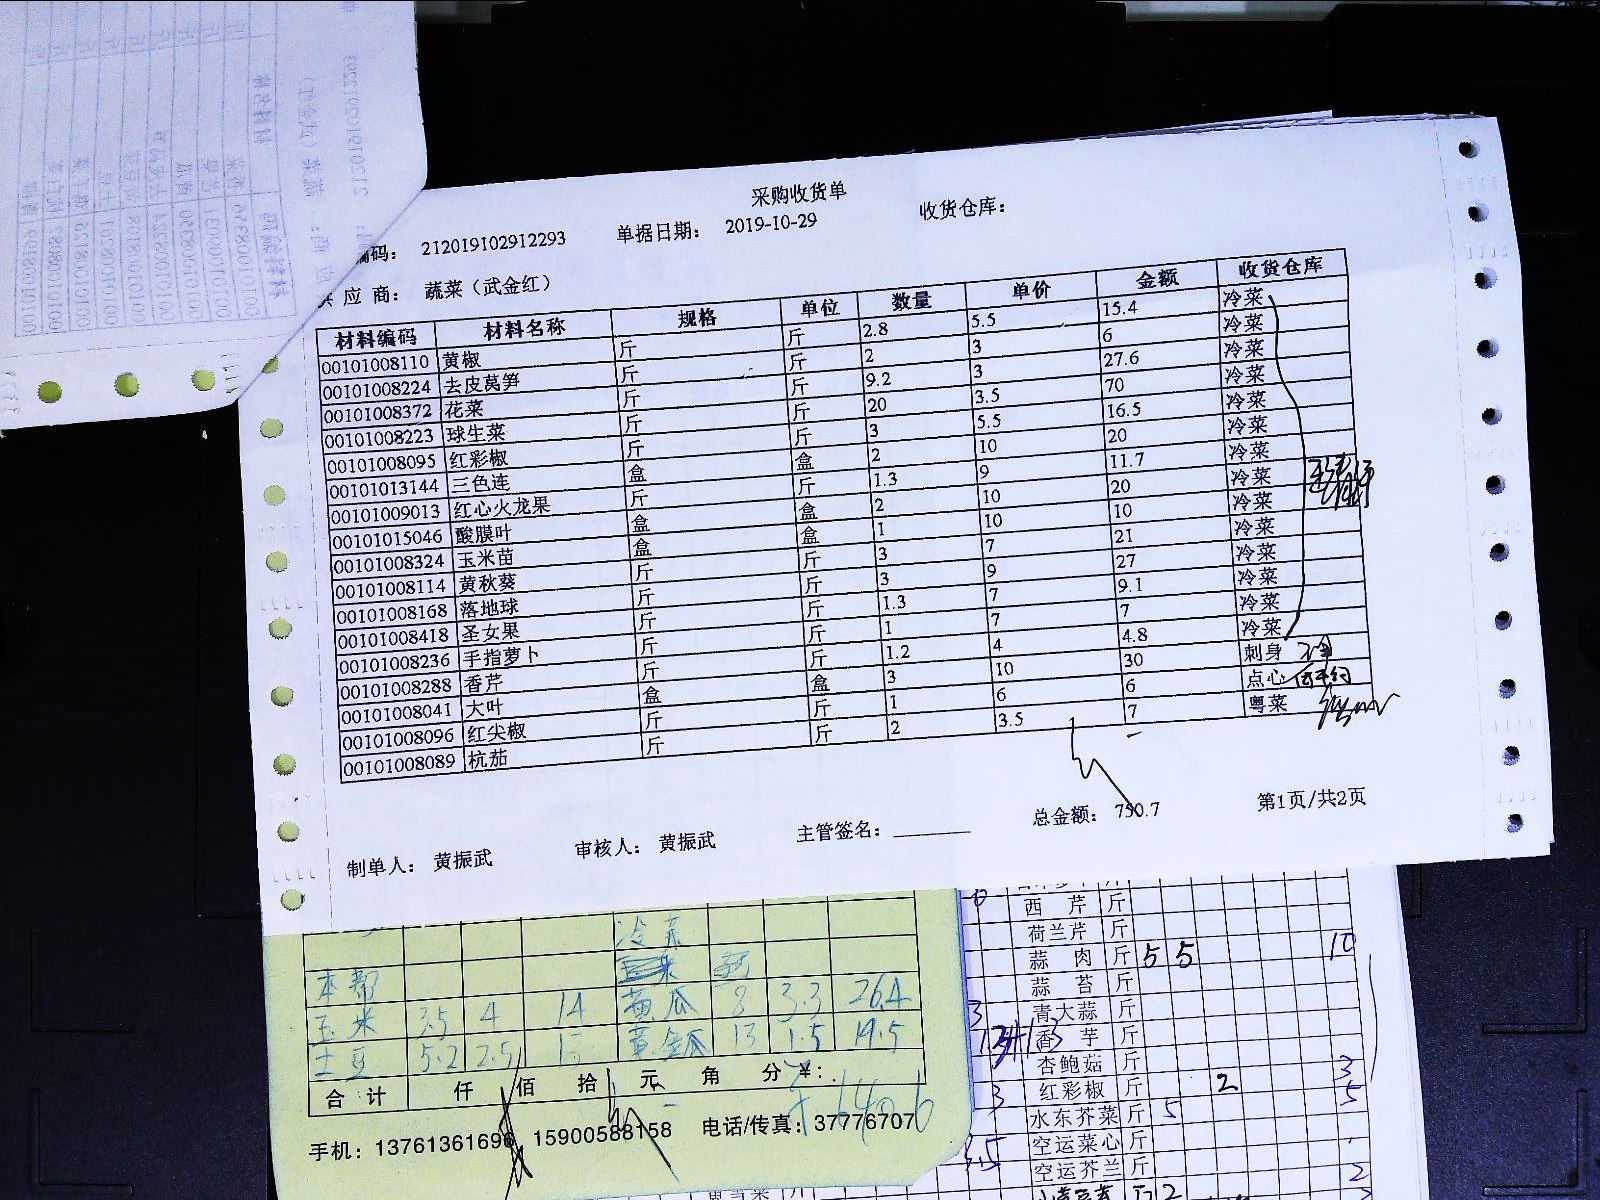 采购收货单
编码： 212019102912293 单据日期： 2019-10-29 收货仓库：
供 应 商： 蔬菜（武金红）
材料编码 材料名称 规格 单位 数量 单价 金额 收货仓库
00101008110 黄椒 斤 斤 2.8 5.5 15.4 冷菜
00101008224 去皮莴笋 斤 斤 2 3 6 冷菜
00101008372 花菜 斤 斤 9.2 3 27.6 冷菜
00101008223 球生菜 斤 斤 20 3.5 70 冷菜
00101008095 红彩椒 斤 斤 3 5.5 16.5 冷菜
00101013144 三色连 盒 盒 2 10 20 冷菜
00101009013 红心火龙果 斤 斤 1.3 9 11.7 冷菜
00101015046 酸膜叶 盒 盒 2 10 20 冷菜
00101008324 玉米苗 盒 盒 1 10 10 冷菜
00101008114 黄秋葵 斤 斤 3 7 21 冷菜
00101008168 落地球 斤 斤 3 9 27 冷菜
00101008418 圣女果 斤 斤 1.3 7 9.1 冷菜
00101008236 手指萝卜 斤 斤 1 7 7 冷菜
00101008288 香芹 斤 斤 1.2 4 4.8 冷菜
00101008041 大叶 盒 盒 3 10 30 刺身
00101008096 红尖椒 斤 斤 1 6 6 点心
00101008089 杭茄 斤 斤 2 3.5 7 粤菜
制单人： 黄振武 审核人： 黄振武 主管签名： 总金额： 750.7 第1页/共2页
冷菜
本帮
玉米 3.5 4 14 黄瓜 8 3.3 26.4
土豆 5.2 2.5 13 黄金瓜 13 1.5 19.5
合 计 仟 佰 拾 元 角 分 ¥:
手机：13761361696 15900588158 电话/传真：37776707
西 芹 斤
荷兰芹 斤
蒜 肉 斤 5 5 10
蒜 苔 斤
3 青大蒜 斤
香 芋 斤
杏鲍菇 斤 3
3 红彩椒 斤 2 5
水东芥菜 斤 5
空运菜心 斤
空运芥兰 斤 2